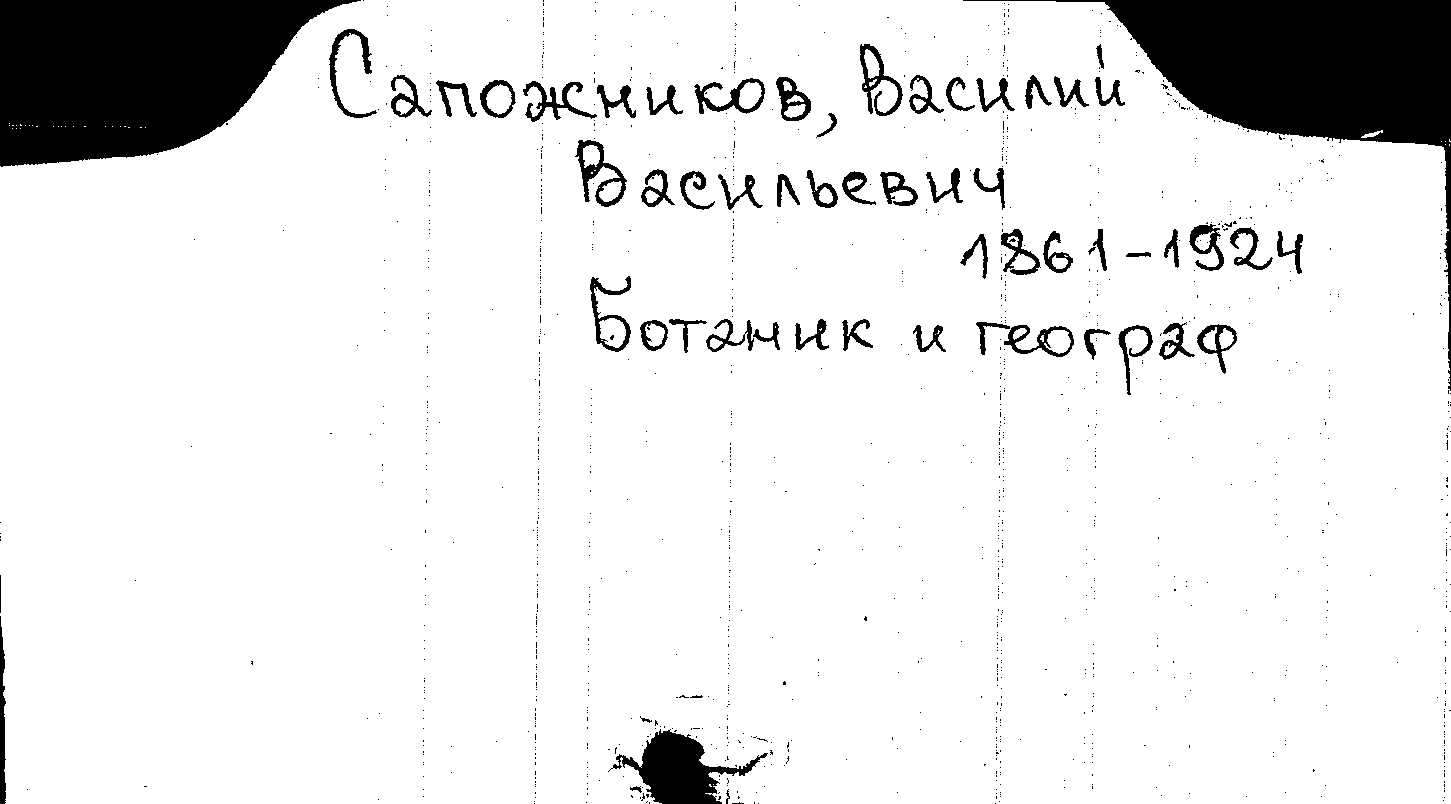 Сапожников, Василий
Васильевич
1861-1924
Ботаник и географ